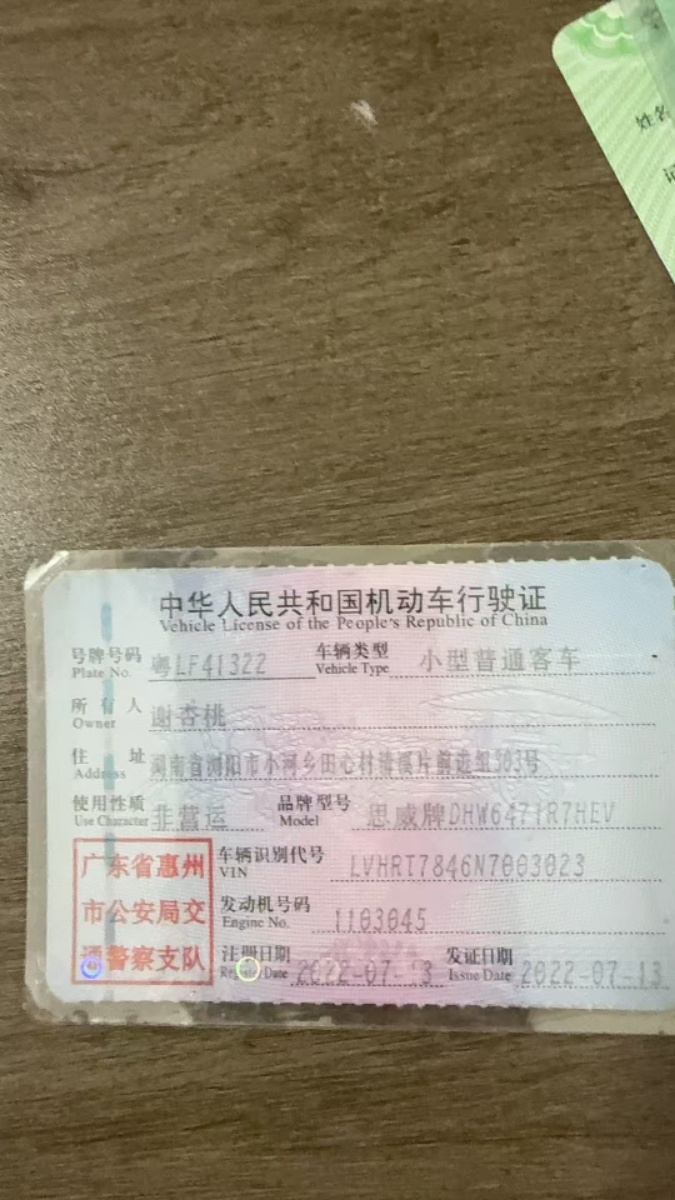 姓名
中华人民共和国机动车行驶证
Vehicle License of the People's Republic of China
号牌号码 Plate No. 粤LF41322 车辆类型 Vehicle Type 小型普通客车
所有人 Owner 谢杏桃
住址 Address 湖南省浏阳市小河乡田心村 303号
使用性质 Use Character 非营运 品牌型号 Model 思威牌DHW6471R7HEV
广东省惠州
市公安局交
通警察支队
车辆识别代号 VIN LVHRT7846N7003023
发动机号码 Engine No. 1103045
注册日期 Register Date 2022-07-13 发证日期 Issue Date 2022-07-13